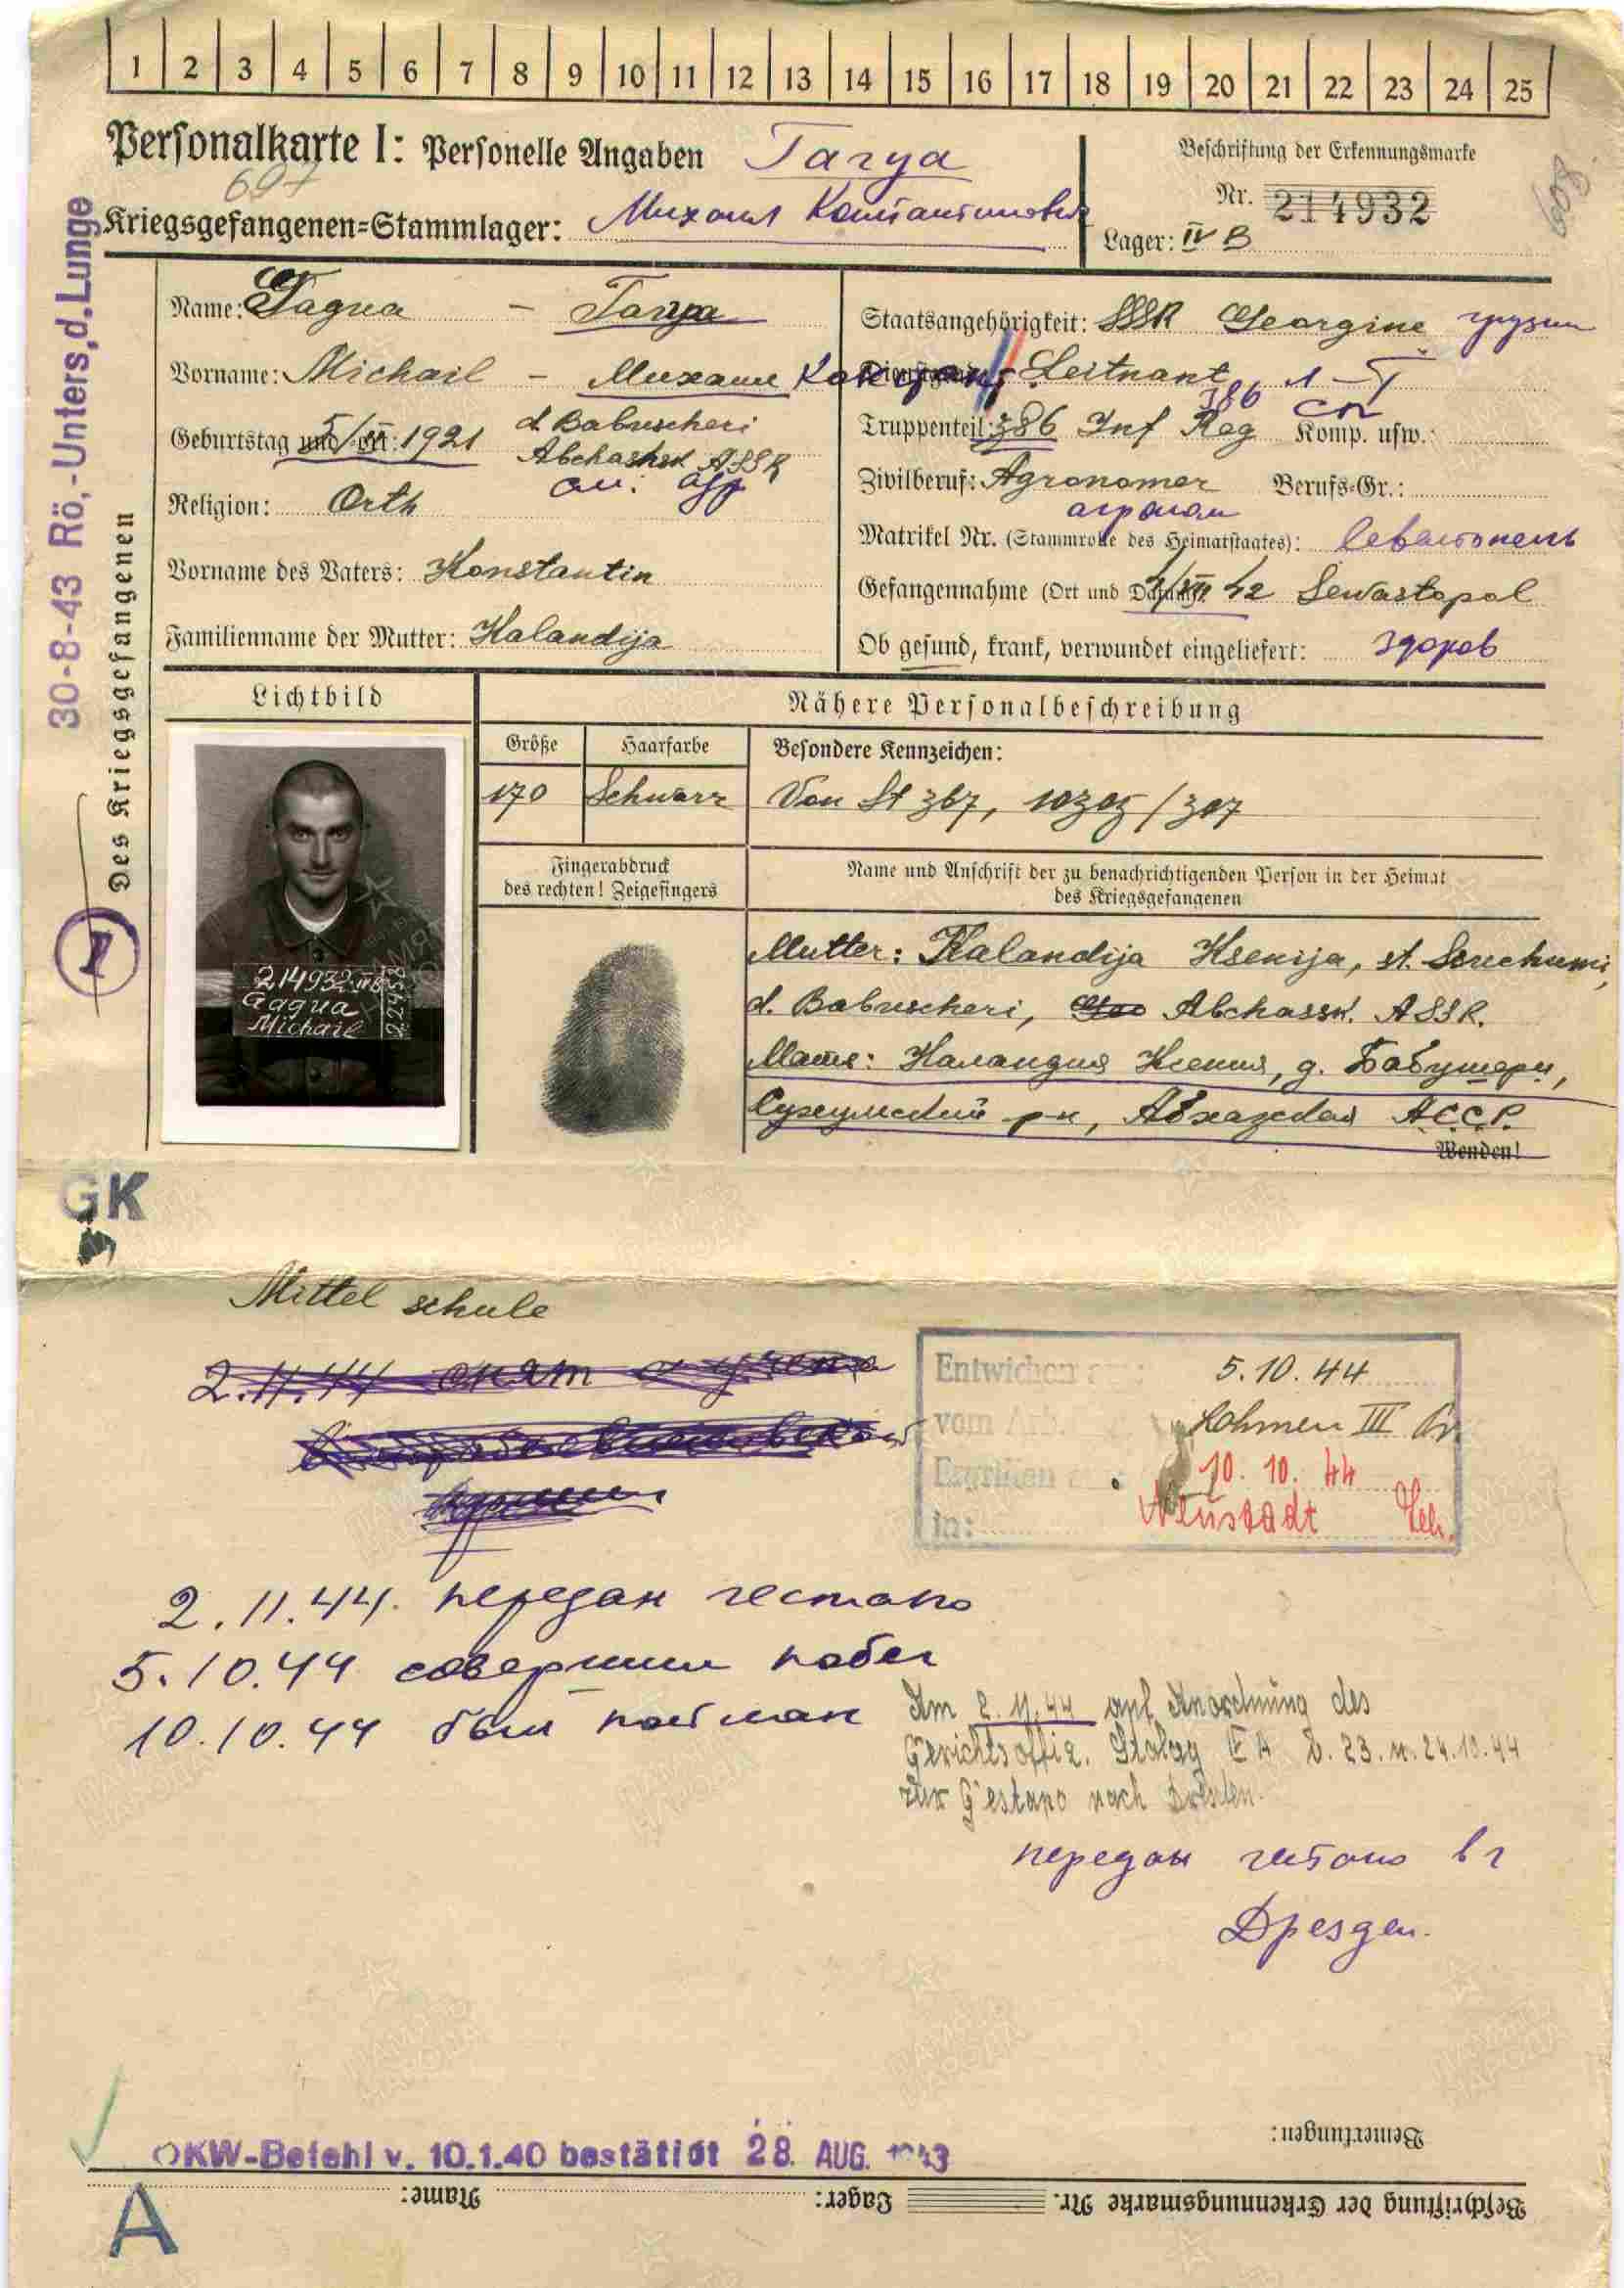 1 2 3 4 5 6 7 8 9 10 11 12 13 14 15 16 17 18 19 20 21 22 23 24 25
Personalkarte I: Personelle Angaben Гагуа
Beschriftung der Erkennungsmarke
697
Nr. 214932
608
Kriegsgefangenen=Stammlager: Михаил Константинович
Lager: IV B
30-8-43 Rö,-Unters,d,Lunge
Des Kriegsgefangenen
Name: Gagua – Гагуа
Staatsangehörigkeit: SSSR Georgine грузин
Vorname: Michail – Михаил
Leitnant л-т
386 сп
Geburtstag und Ort: 1921 d. Babuscheri
Abchassk ASSR
Truppenteil: 386 Inf Reg Komp. usw.:
Religion: Orth
Zivilberuf: Agronomer Berufs=Gr.:
агроном
Matrikel Nr. (Stammrolle des Heimatstaates): Севастополь
Vorname des Vaters: Konstantin
Gefangennahme (Ort und Datum): 42 Sewastopol
Familienname der Mutter: Kalandija
Ob gesund, krank, verwundet eingeliefert: здоров
Lichtbild
Nähere Personalbeschreibung
Größe Haarfarbe Besondere Kennzeichen:
170 Schwarz Von St 367, 10305/307
Fingerabdruck
des rechten! Zeigefingers
Name und Anschrift der zu benachrichtigenden Person in der Heimat
des Kriegsgefangenen
214932 IVB
Gagua
Michail
Mutter: Kalandija Ksenija, st. Suchumi,
d. Babuscheri, Abchassk. ASSR.
Мать: Каландия Ксения, д. Бабушери,
Сухумский р-н, Абхазская АССР.
Wenden!
1
GK
Mittel schule
2.11.44 снят с учета
Entwichen am: 5.10.44
vom Arb. Lohmen III
Ergriffen 10.10.44
in: Neustadt
2.11.44. передан гестапо
5.10.44 совершил побег
10.10.44 был пойман
Am 2.11.44 auf Anordnung des
Gerichtsoffiz. Stalag IV A v. 23. u. 24.10.44
zur Gestapo nach Dresden.
передан гестапо в г
Дрезден.
Bemerkungen:
OKW-Befehl v. 10.1.40 bestätigt 28. AUG. 1943
Beschriftung der Erkennungsmarke Nr. Lager: Name:
A